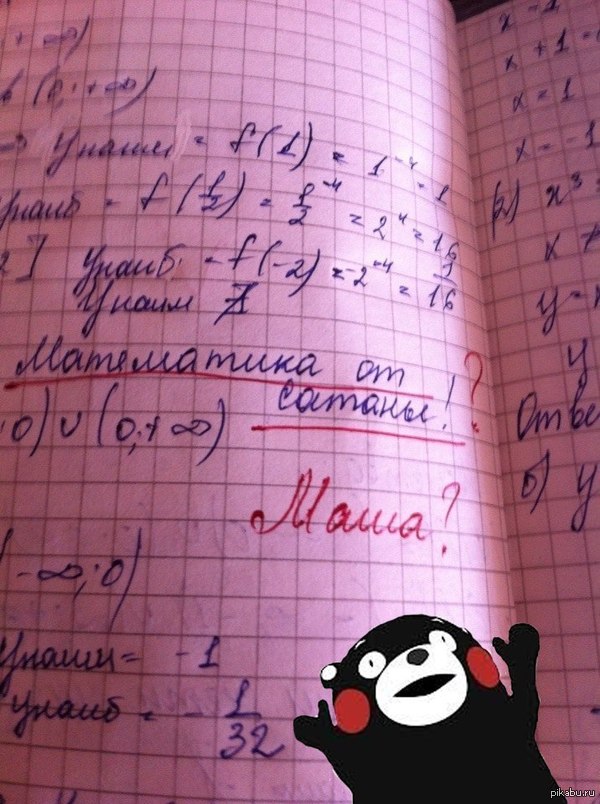 ; +∞)
(0; +∞)
Yнаим = f(1) = 1⁻⁴ = 1
Yнаиб = f(1/2) = 1/2⁻⁴ = 2⁴ = 16
2] Yнаиб. = f(-2) = -2⁻⁴ = 1/16
Yнаим ∄
Математика от
сатаны! ?
; 0) ∪ (0; + ∞)
Маша?
-∞; 0)
Yнаим = -1
Yнаиб = - 1/32
x - 1
x + 1 =
x = 1
x = -1
2) x³
x
y =
y
Отве
б) y
pikabu.ru